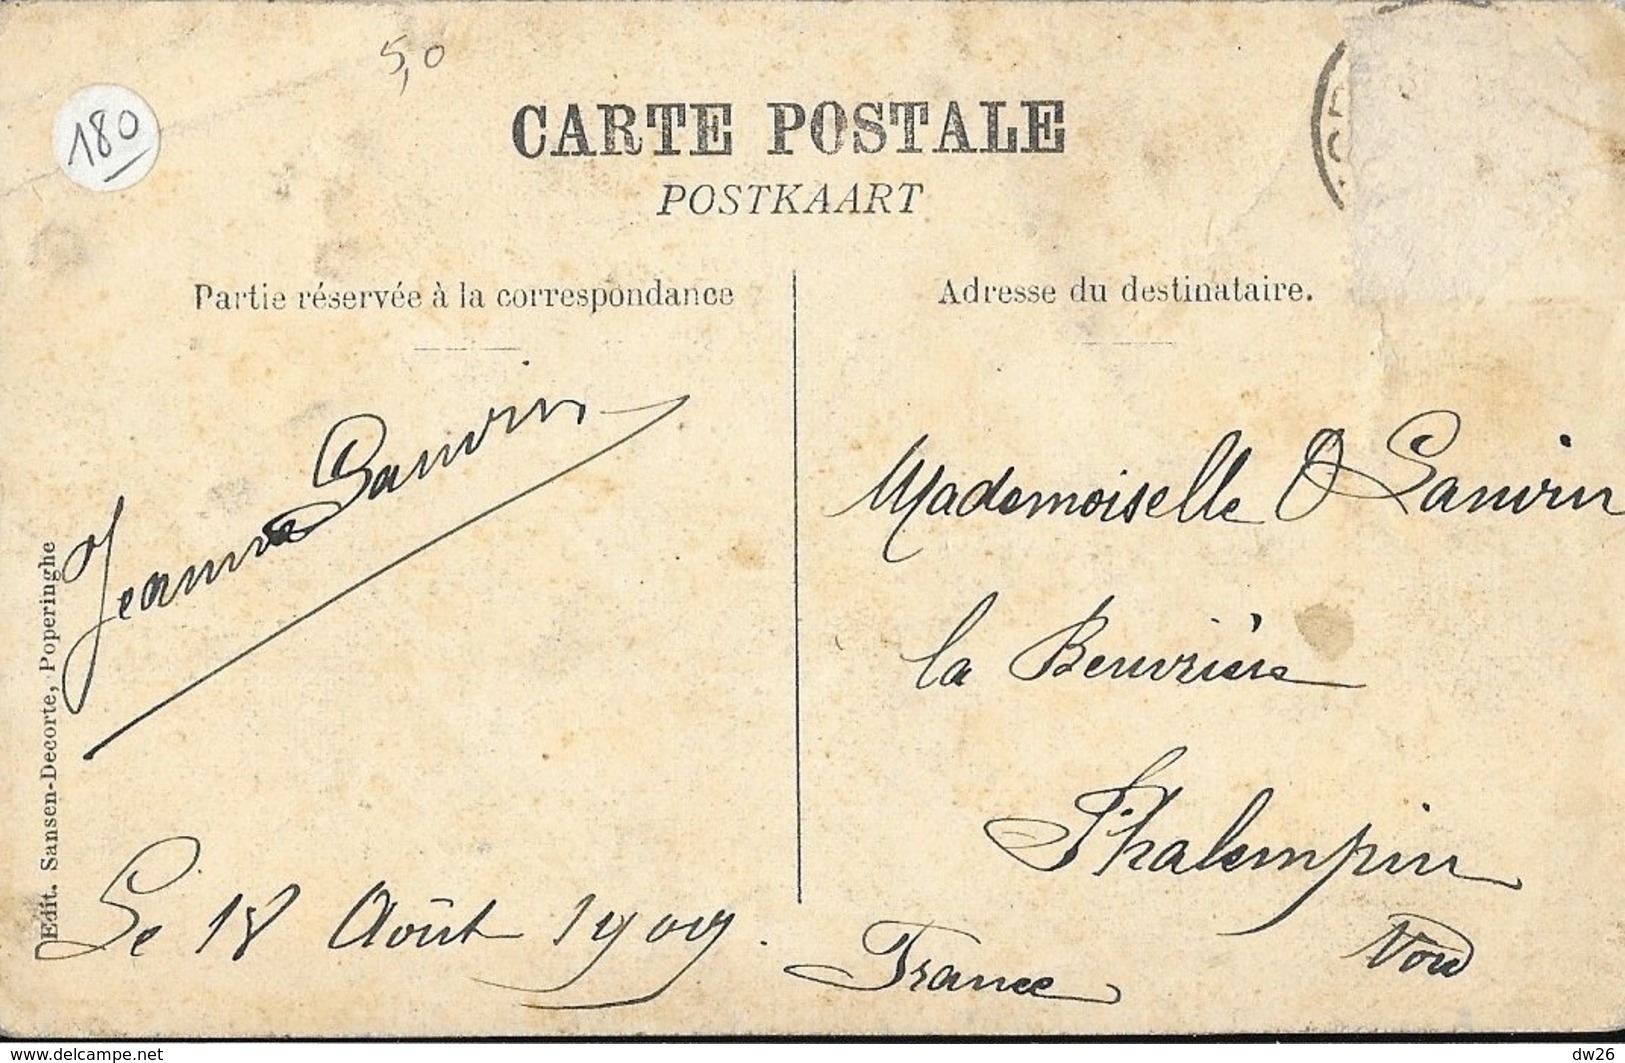 5,0
180
CARTE POSTALE
POSTKAART
Partie réservée à la correspondance
Adresse du destinataire.
Jeanne Sanvin
Mademoiselle O Sanvin
la Beuvrière
Phalempin
Nord
France
Le 18 Août 1909.
Edit. Sansen-Decorte, Poperinghe
delcampe.net
dw26